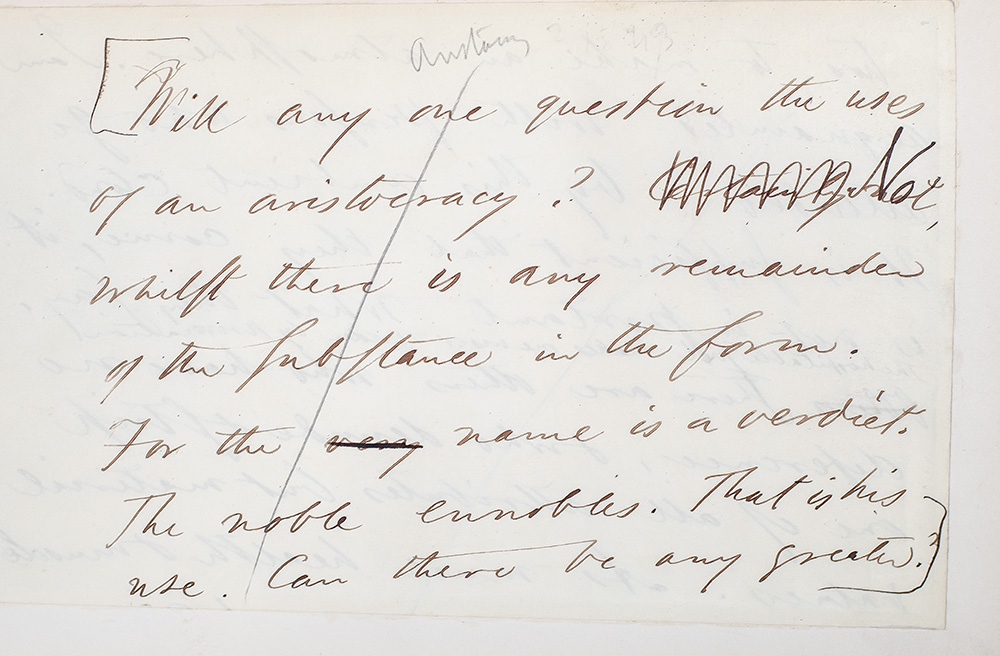 Will any one question the uses
of an aristocracy? Not,
whilst there is any remainder
of the substance in the form.
For the very name is a verdict.
The noble ennobles. That is his
use. Can there be any greater?